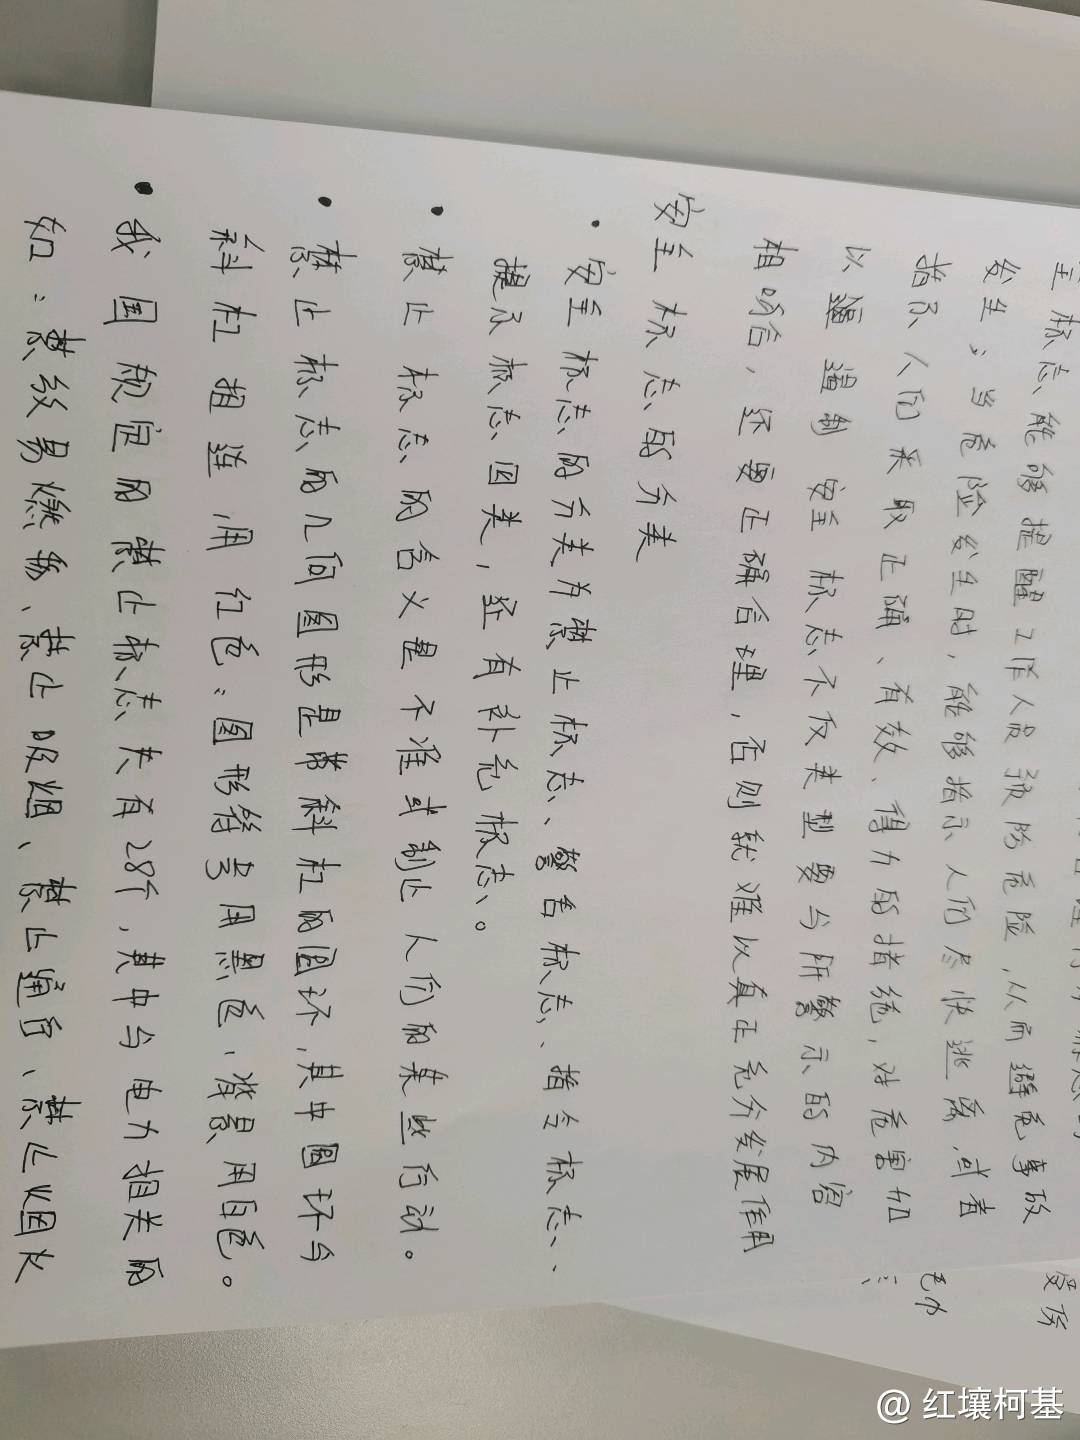 全标志能够提醒工作人员预防危险，从而避免事故
发生；当危险发生时，能够指示人们尽快逃离，或者
指示人们采取正确、有效、得力的措施，对危害加
以遏制 安全标志不仅类型要与所警示的内容
相吻合，还要正确合理，否则就难以真正充分发展作用
安全标志的分类
• 安全标志的分类为禁止标志、警告标志、指令标志、
提示标志四类，还有补充标志。
• 禁止标志的含义是不准或制止人们的某些行动。
• 禁止标志的几何图形是带斜杠的圆环，其中圆环与
斜杠相连用红色；图形符号用黑色，背景用白色。
• 我国规定的禁止标志共有28个，其中与电力相关的
如：禁放易燃物、禁止吸烟、禁止通行、禁止烟火
毛巾
@红壤柯基